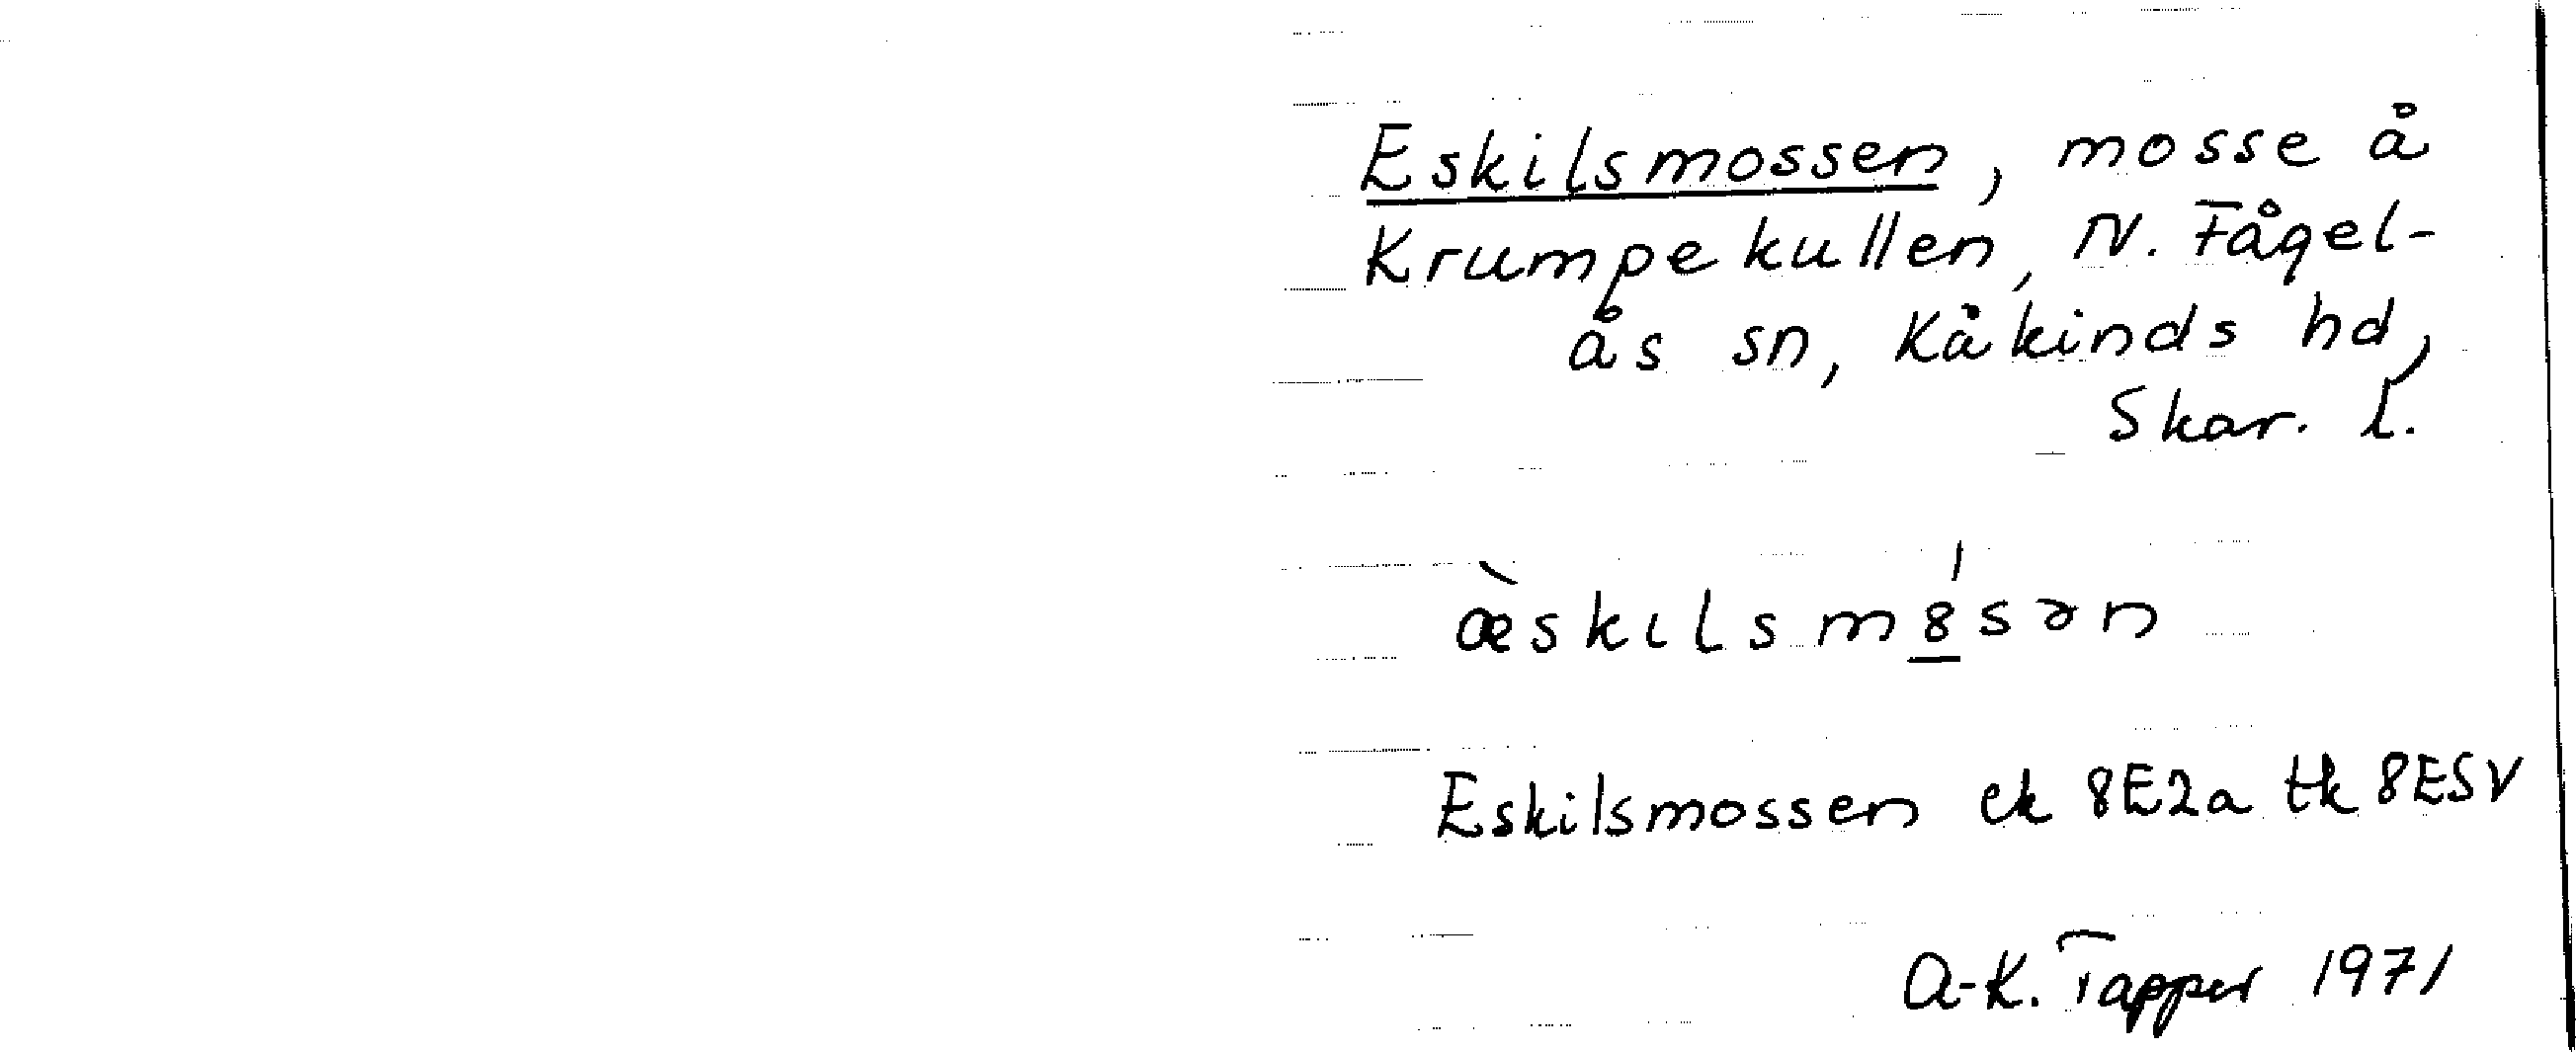 Eskilsmossen, mosse å
Krumpekullen, N. Fågel-
ås sn, Kåkinds hd,
Skar. l.
æ̀skɩlsm8́sən
Eskilsmossen ek 8E2a tk 8ESV
A-K. Tapper 1971